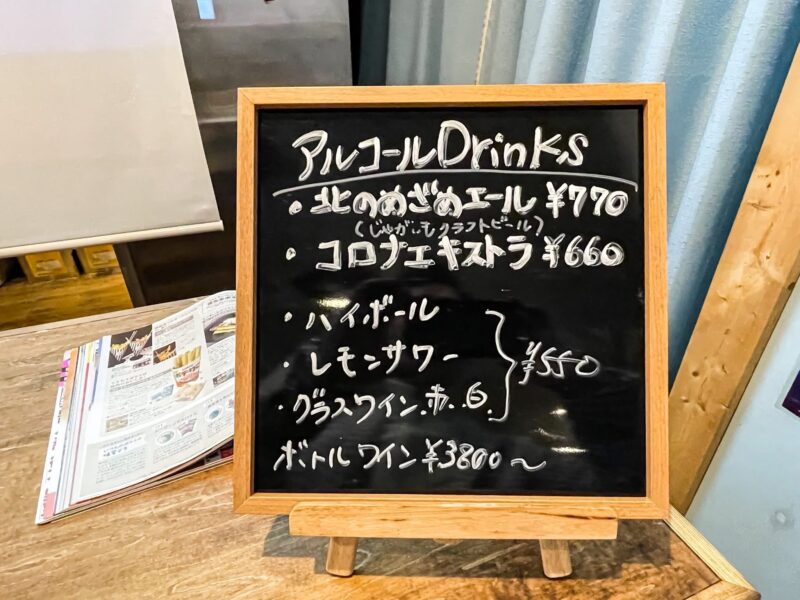 アルコールDrinks
・北のめざめエール ¥770
(じゃがいもクラフトビール)
・コロナエキストラ ¥660
・ハイボール
・レモンサワー
・グラスワイン.赤.白.
¥550
ボトルワイン ¥3800〜